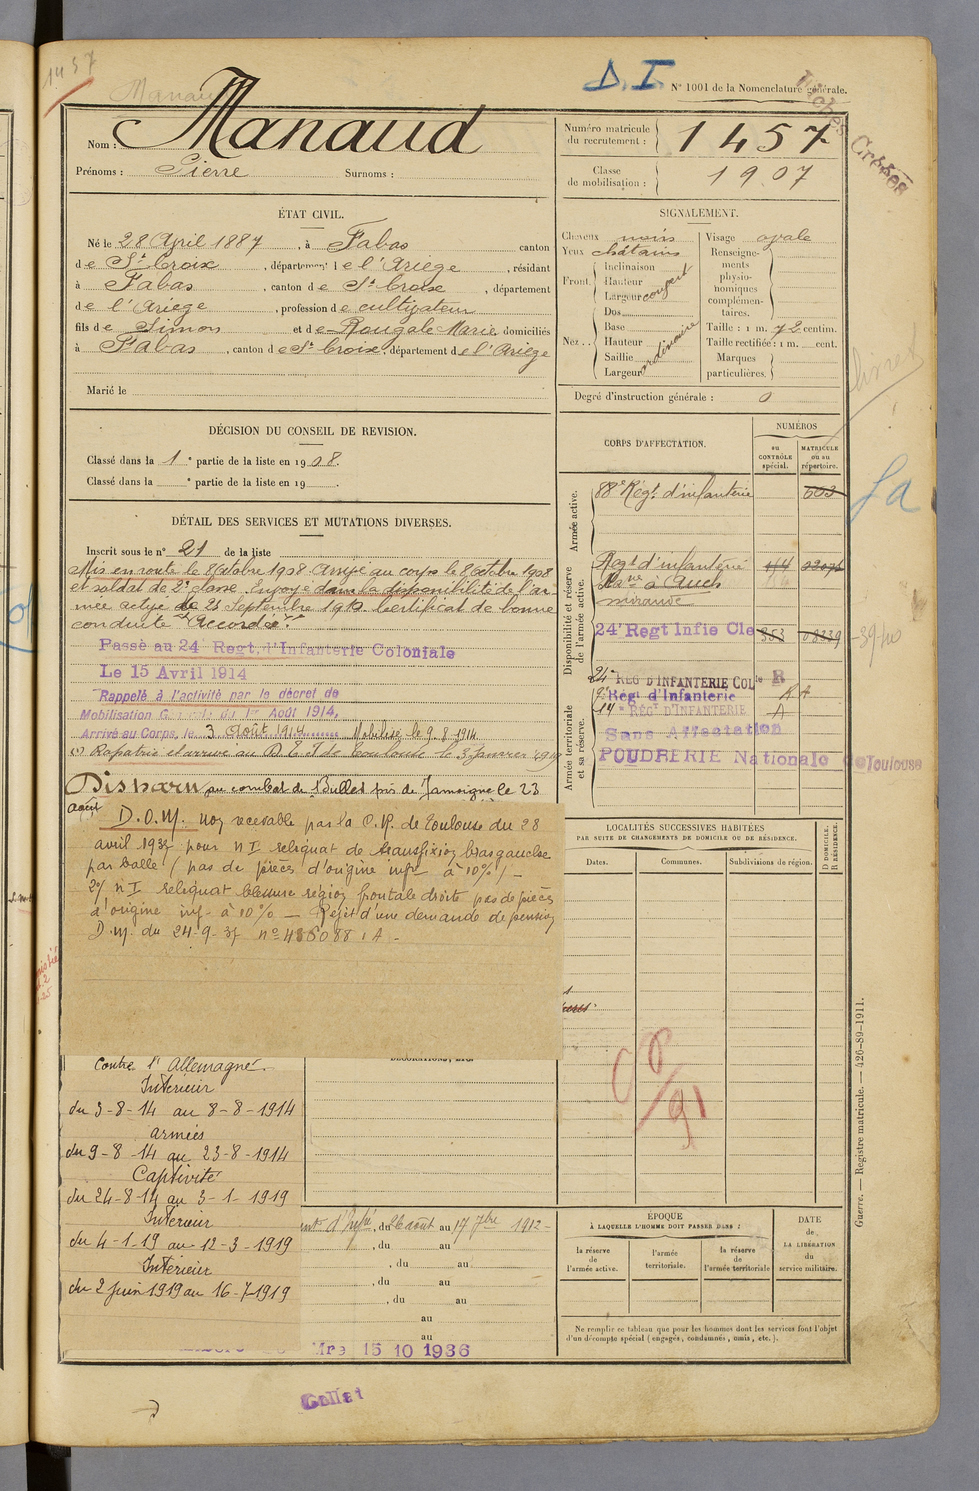 1457
Manaud
D.I.
N° 1001 de la Nomenclature générale.
Nom : Manaud
Prénoms : Pierre Surnoms :
Numéro matricule du recrutement : 1457
Classe de mobilisation : 1907
ÉTAT CIVIL.
Né le 28 April 1887, à Fabas canton
de Ste Croix, département de l'Ariège, résidant
à Fabas, canton de Ste Croix, département
de l'Ariège, profession de cultivateur
fils de Simon et de Rougale Marie domiciliés
à Fabas, canton de Ste Croix, département de l'Ariège
Marié le
SIGNALEMENT.
Cheveux noirs
Yeux châtains
Front.
Inclinaison
Hauteur
Largeur
Dos
Nez . .
Base
Hauteur
Saillie
Largeur
ordinaire
Visage ovale
Renseigne-
ments
physio-
nomiques
complémen-
taires.
Taille : 1 m. 72 centim.
Taille rectifiée : 1 m. cent.
Marques
particulières.
Degré d'instruction générale :
livret
DÉCISION DU CONSEIL DE REVISION.
Classé dans la 1e partie de la liste en 1908.
Classé dans la e partie de la liste en 19
DÉTAIL DES SERVICES ET MUTATIONS DIVERSES.
Inscrit sous le n° 21 de la liste
Mis en route le 8 octobre 1908 Arrivé au corps le 8 octobre 1908
et soldat de 2e classe. Envoyé dans la disponibilité de l'ar-
mée active le 25 Septembre 1910. Certificat de bonne
conduite "Accordé".
Passé au 24 Regt. d'Infanterie Coloniale
Le 15 Avril 1914
Rappelé à l'activité par le décret de
Mobilisation Générale du 1er Août 1914,
Arrivé au Corps, le 3 Août 1914 Mobilisé le 9.8.1914
Rapatrié et arrivé au D. E. I de Toulouse le 3 Janvier 1919
Disparu au combat de Bulles près de Jamoigne le 23
août
D.O.M. non recevable par la C.R. de Toulouse du 28
avril 1937 pour n I reliquat de transfixion bras gauche
par balle (pas de pièces d'origine infr à 10%) -
2°/ n I reliquat blessure région frontale droite pas de pièces
d'origine inf. à 10% — Rejet d'une demande de pension
D.M. du 24-9-37
Contre l'Allemagne.
Intérieur
du 3-8-14 au 8-8-1914
armées
du 9-8-14 au 23-8-1914
Captivité
du 24-8-14 au 3-1-1919
Intérieur
du 4-1-19 au 12-3-1919
Intérieur
du 2 juin 1919 au 16-7-1919
DÉCORATIONS, ETC.
août au 17 7bre 1912-
, du au
, du au
, du au
, du au
au
au
15 10 1936
CORPS D'AFFECTATION.
NUMÉROS
au CONTRÔLE spécial.
MATRICULE ou au répertoire.
Armée active.
88e Régt d'infanterie 603
Disponibilité et réserve de l'armée active.
Regt d'infanterie
à Auch
mirande
24e Regt Infie Cle 353 08339
Armée territoriale et sa réserve.
24e REG D'INFANTERIE COLle R
Régt d'Infanterie
14e REGt D'INFANTERIE A
Sans Affectation
POUDRERIE Nationale de Toulouse
LOCALITÉS SUCCESSIVES HABITÉES
PAR SUITE DE CHANGEMENTS DE DOMICILE OU DE RÉSIDENCE.
Dates.
Communes.
Subdivisions de région.
D DOMICILE.
R RÉSIDENCE.
ÉPOQUE
À LAQUELLE L'HOMME DOIT PASSER DANS :
la réserve de l'armée active.
l'armée territoriale.
la réserve de l'armée territoriale
DATE
de
LA LIBÉRATION
du
service militaire.
Ne remplir ce tableau que pour les hommes dont les services font l'objet
d'un décompte spécial (engagés, condamnés, omis, etc.).
Guerre. — Registre matricule. — 426-89-1911.